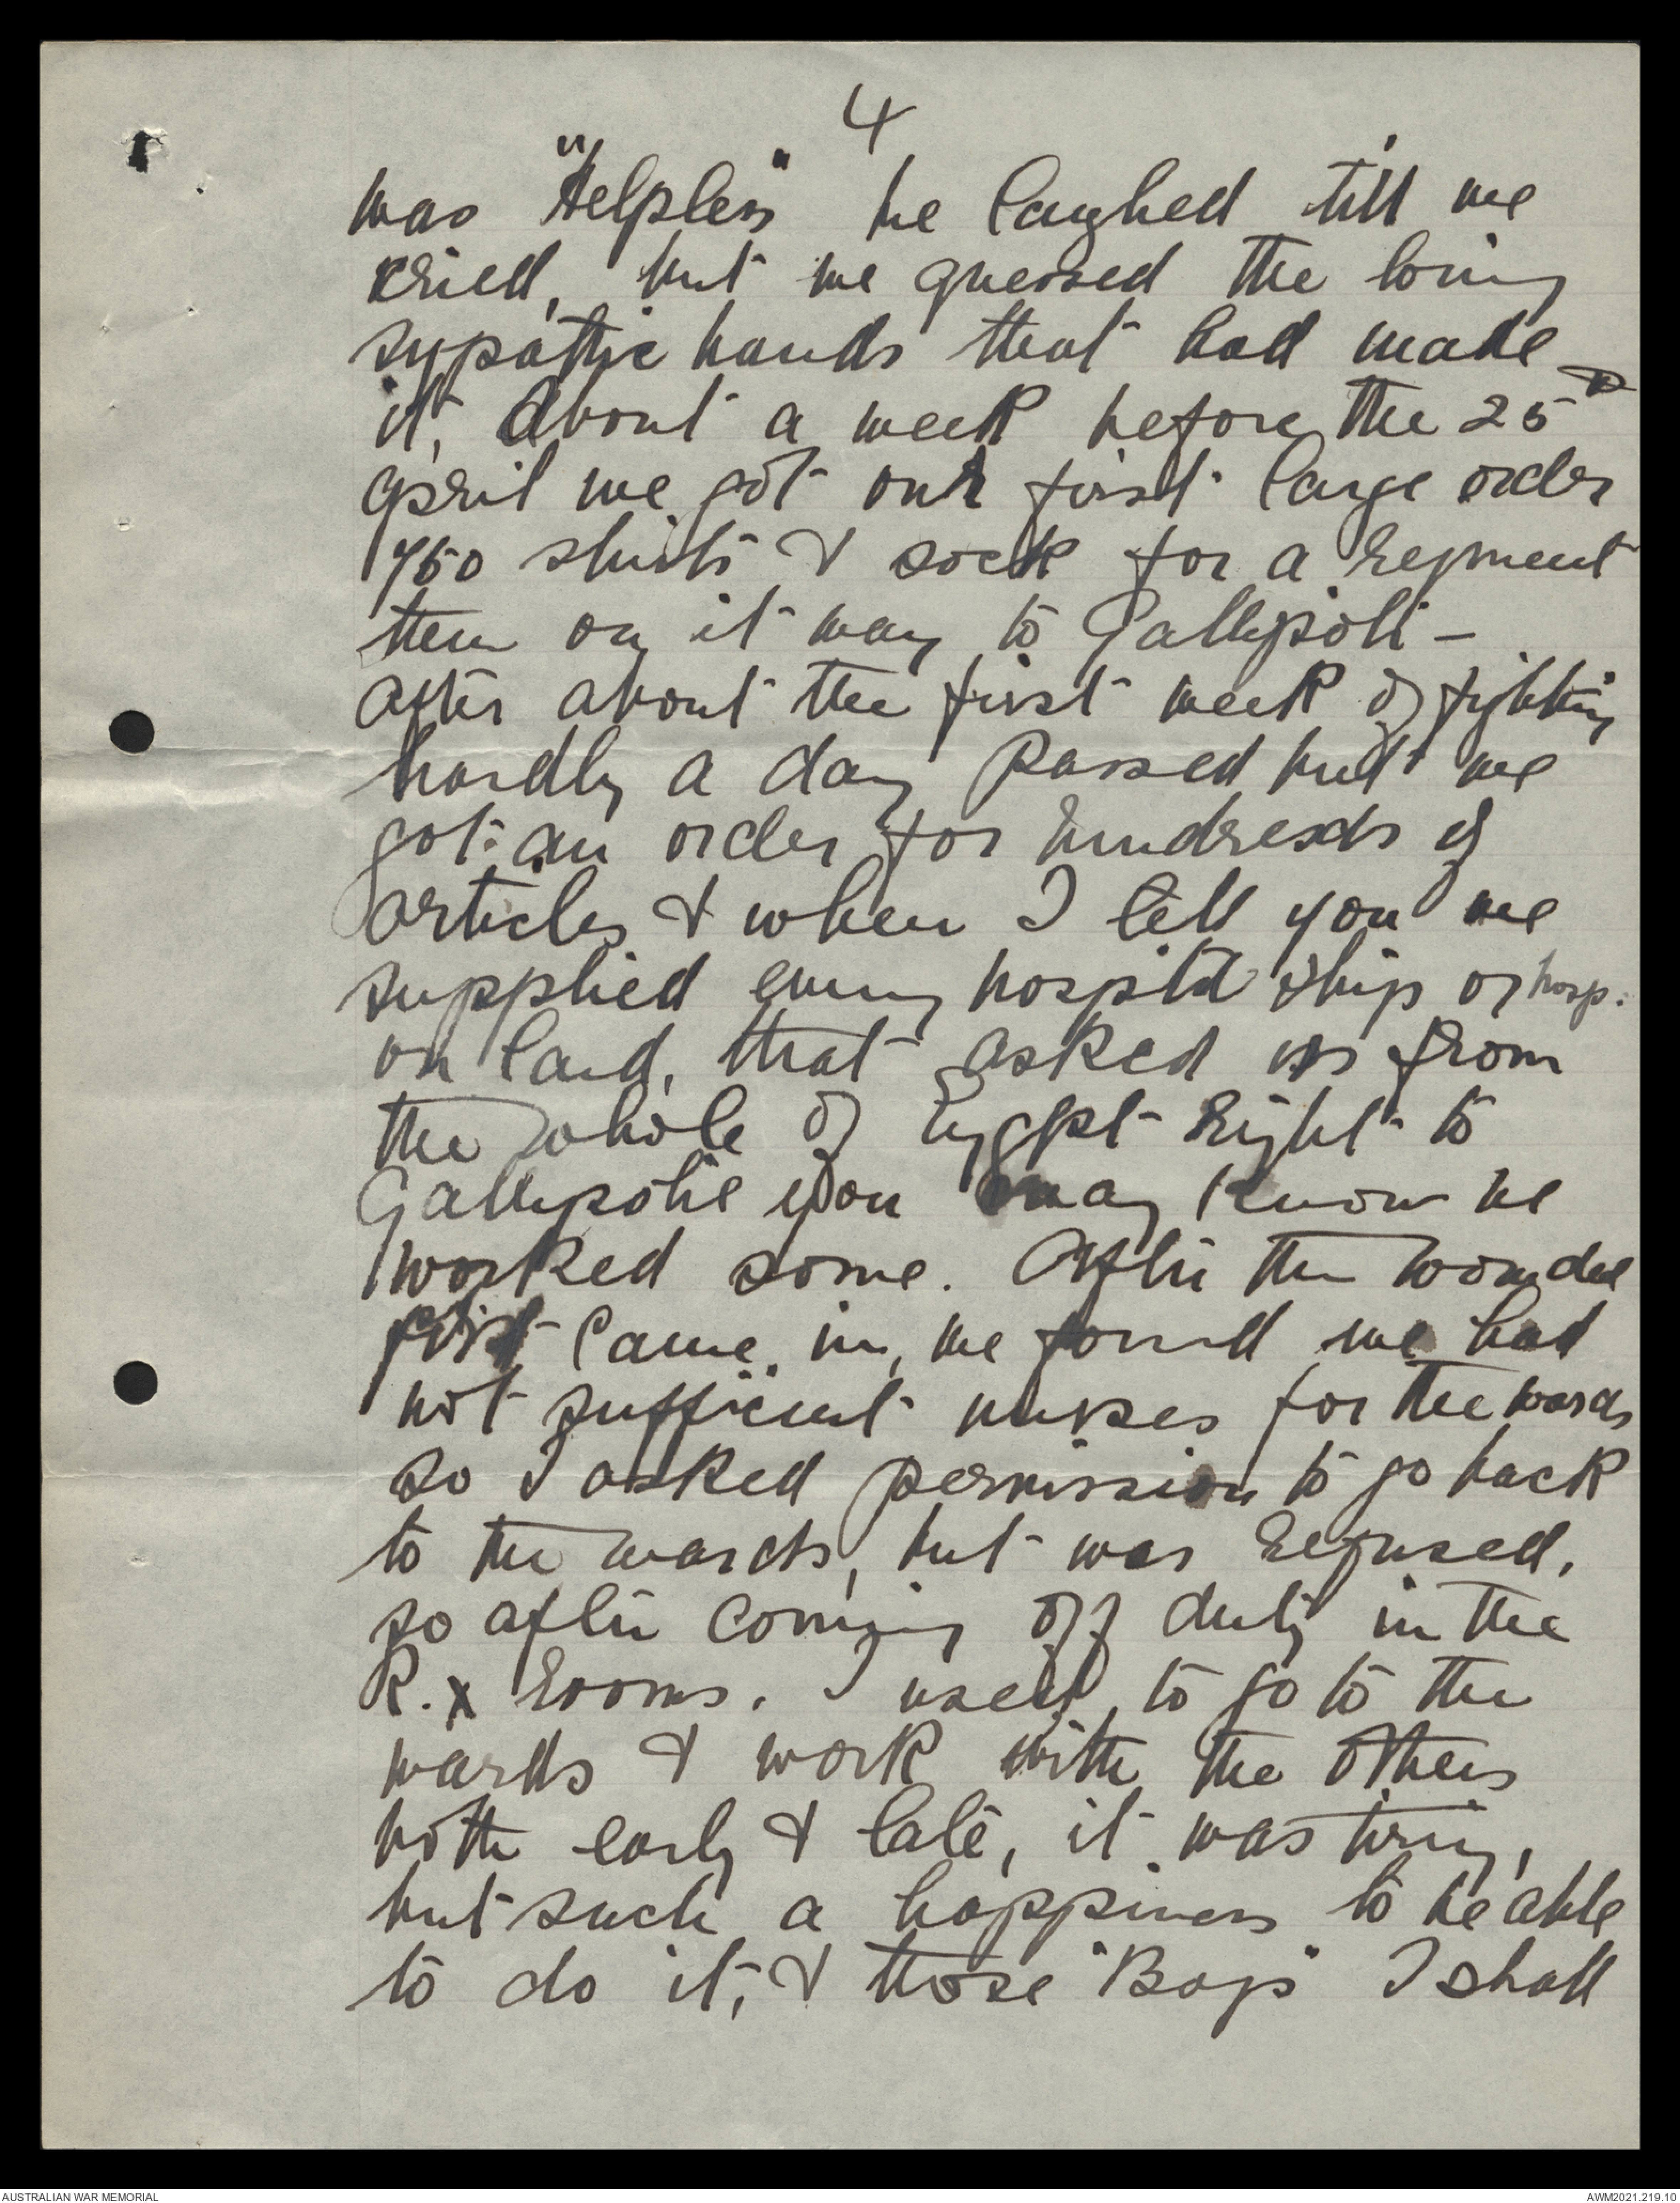 4
was "Helpless" we laughed till we
cried, but we guessed the loving
sypathic hands that had made
it, About a week before the 25th
April we got our first large order
750 shirts & sock for a regiment
then on it way to Gallipoli -
After about the first week of fighting
hardly a day passed but we
got an order for hundreds of
articles & when I tell you we
supplied every hospital ship or hosp.
on land, that asked us from
the whole of Egypt right to
Gallipolie you may know we
worked some. After the wounded
first came in, we found we had
not sufficient nurses for the wards
so I asked permission to go back
to the wards, but was refused,
so after coming off duty in the
R.x rooms. I used to go to the
wards & work with the others
both early & late, it was tiring,
but such a happiness to be able
to do it, & those "Boys" I shall
AUSTRALIAN WAR MEMORIAL
AWM2021.219.10